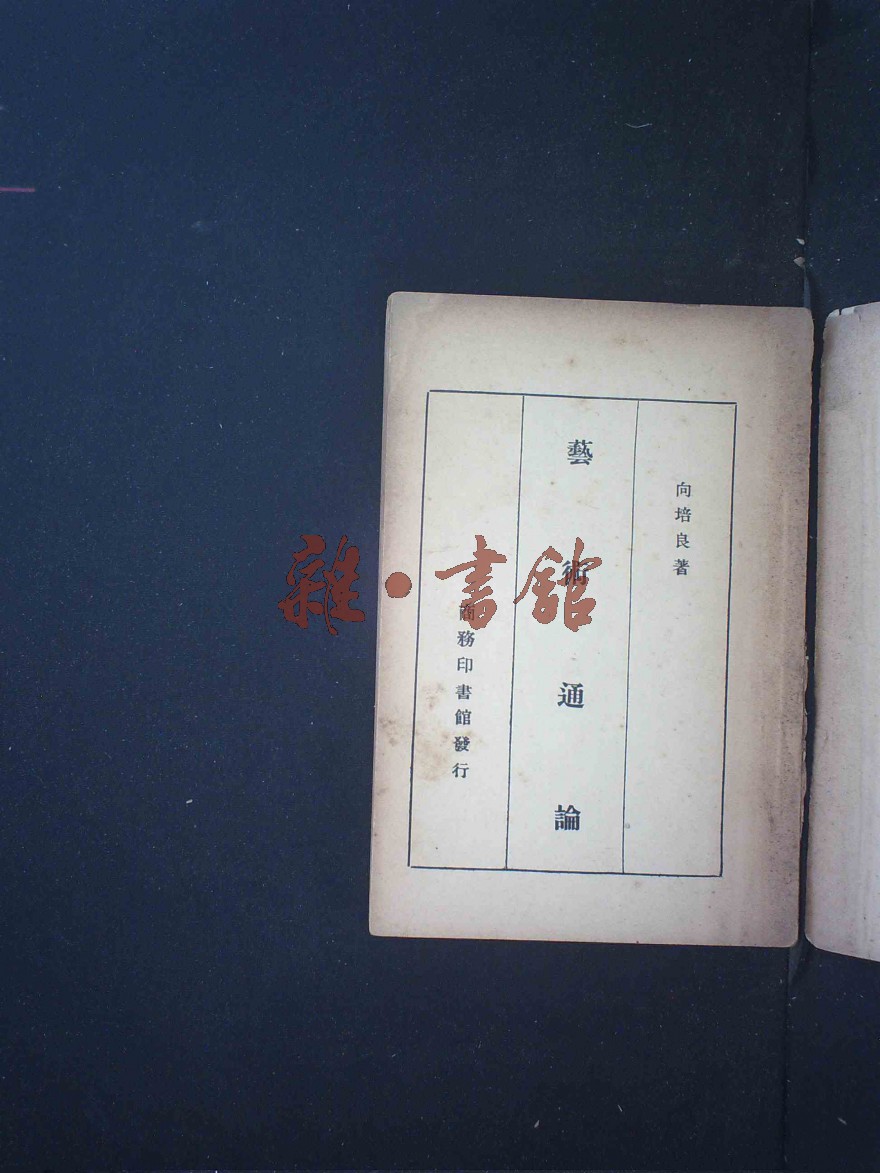 向培良著
藝術通論
商務印書館發行
雜·書館